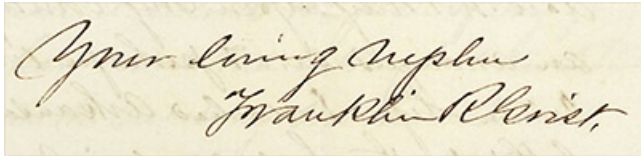 Your loving Nephew
Franklin R Grist.